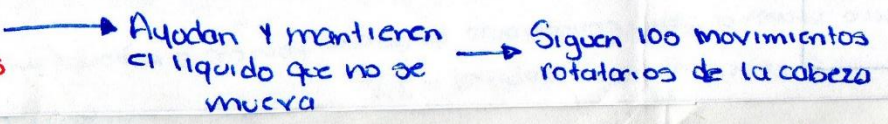 Ayudan y mantienen
el liquido que no se
mueva
Siguen los movimientos
rotatorios de la cabeza